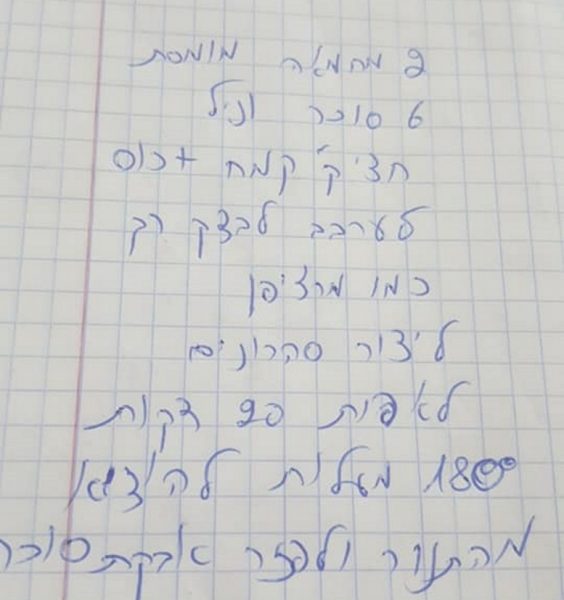 2 מחמאה מומסת
6 סוכר וניל
חצי ק״ג קמח + כוס
לערבב לבצק רך
כמו מרציפן
ליצור סהרונים
לאפות 20 דקות
180° מעלות להוציא
מהתנור ולפזר אבקת סוכר